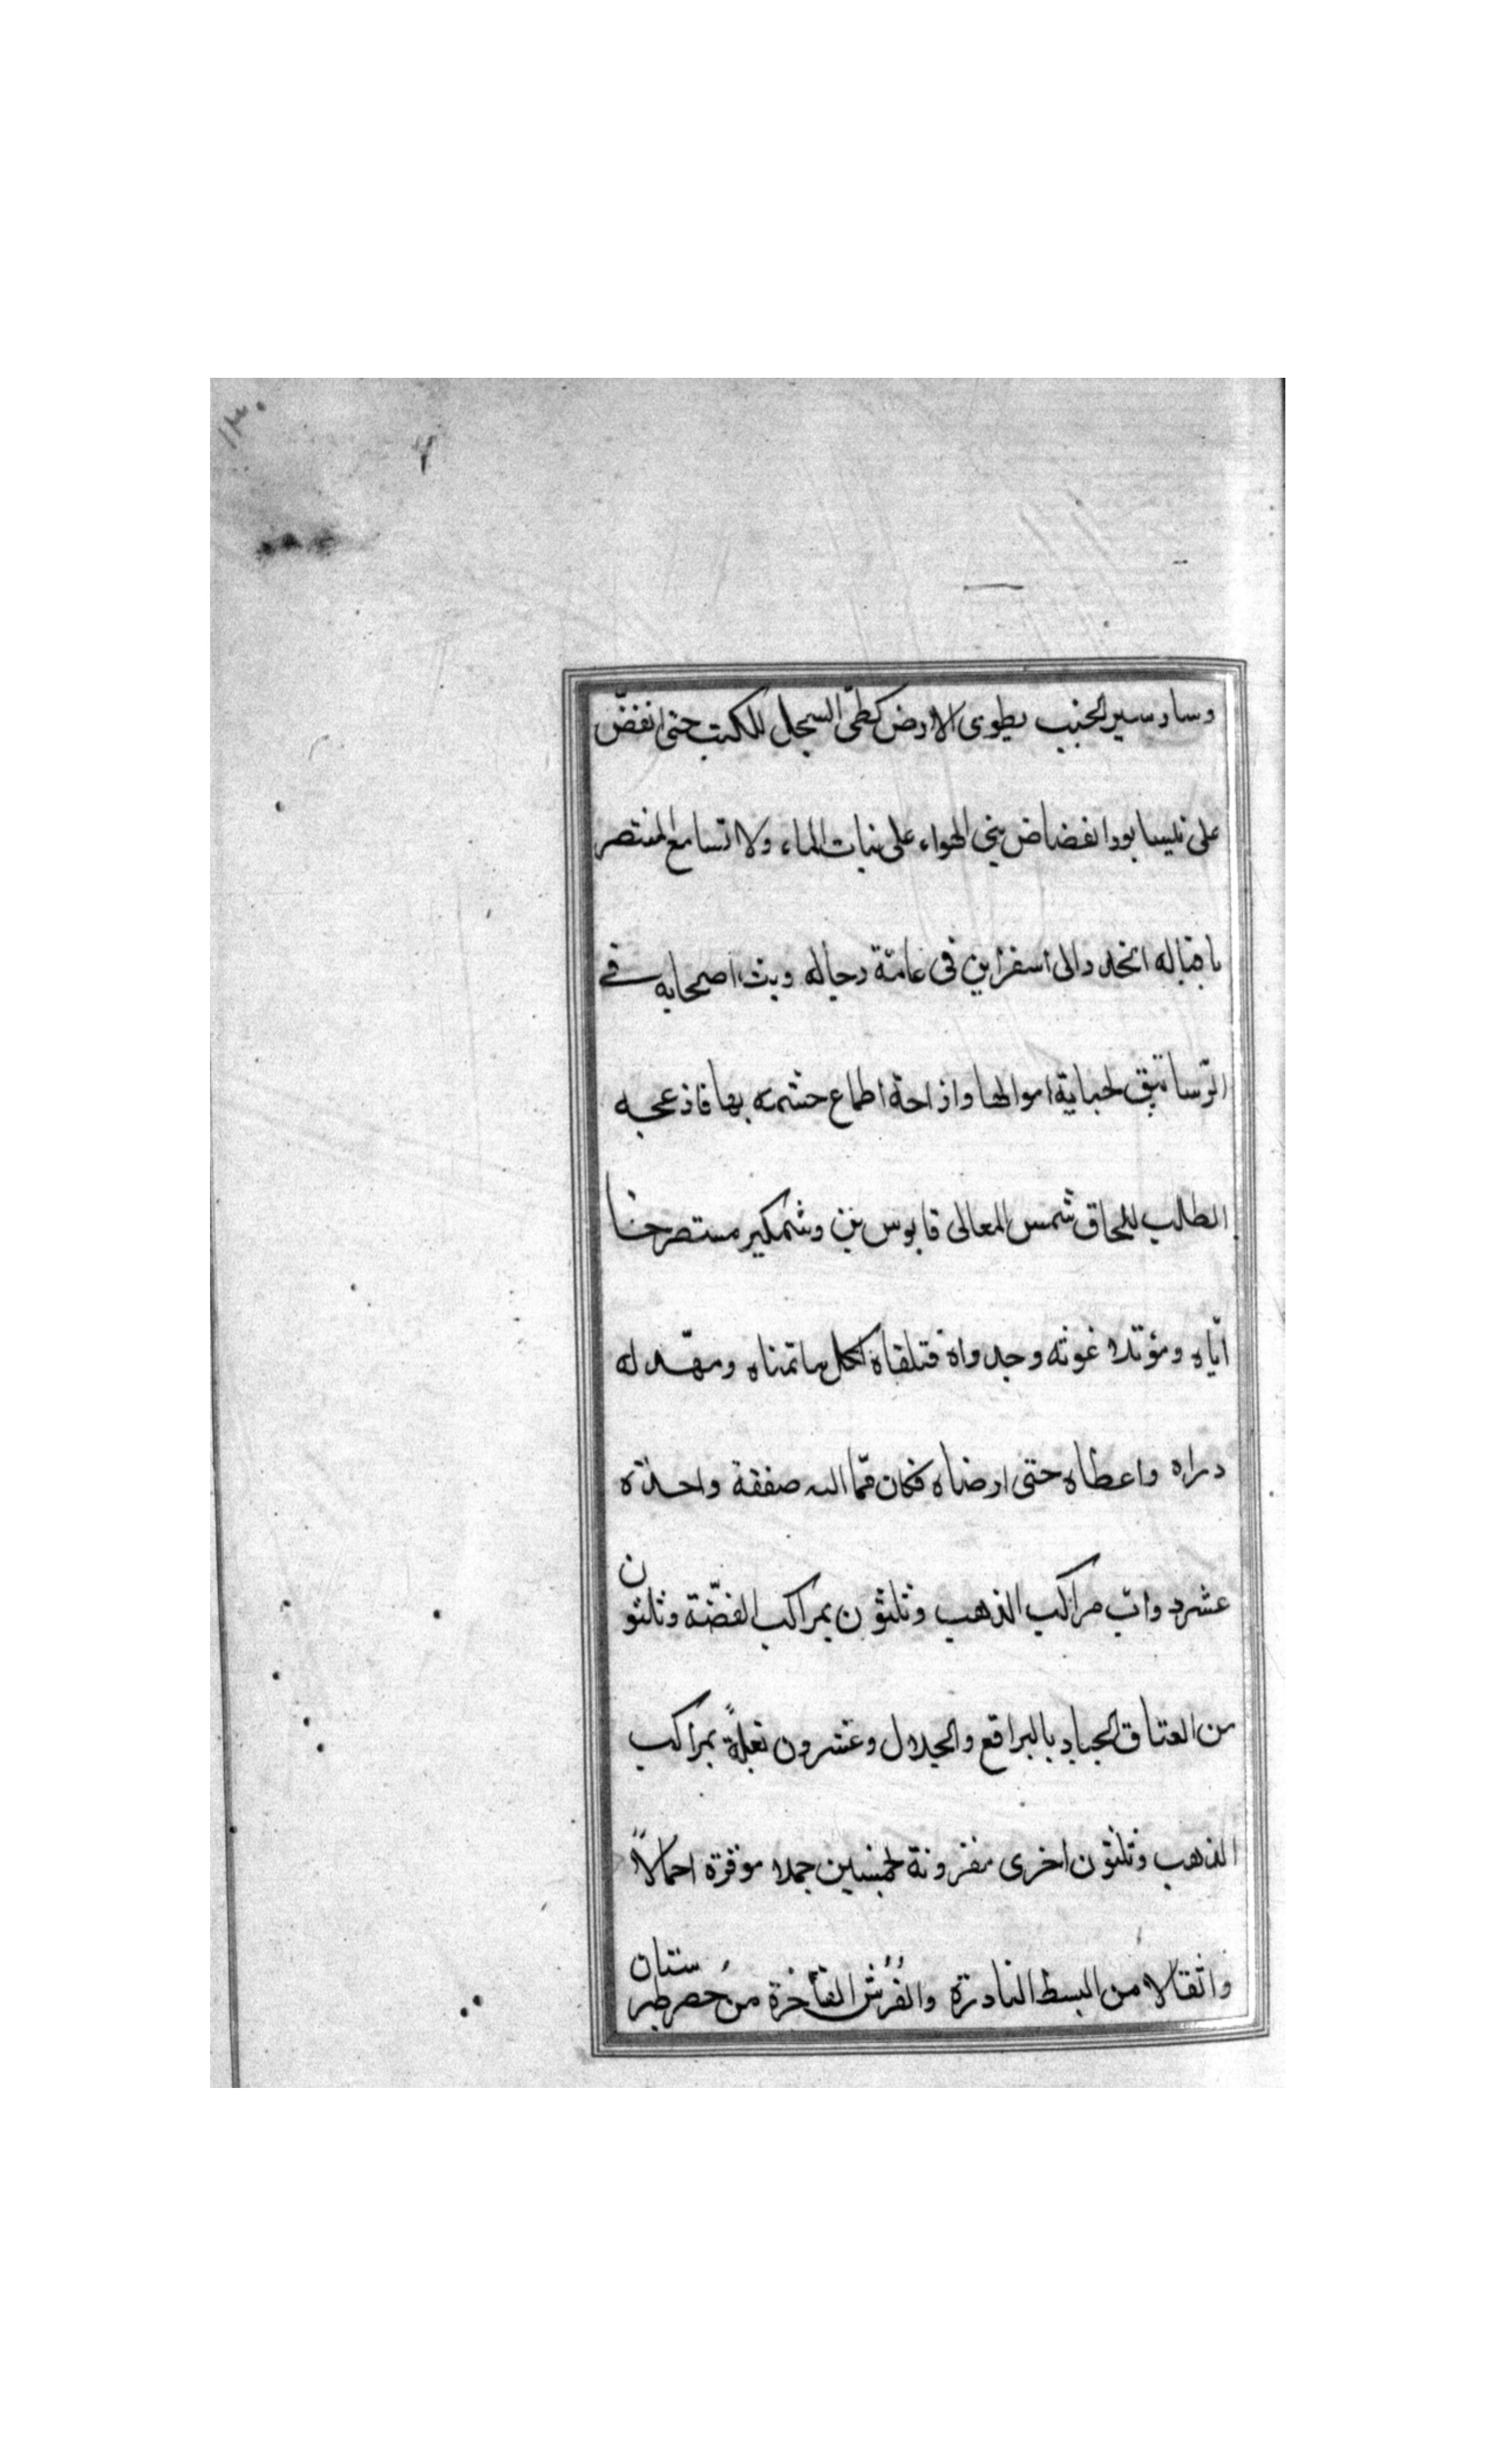 ١٣٠
وسار سير الخبب يطوى الارض كطىّ السجل للكتب حتى انقضّ
على نيسابور انقضاض بنى الهواء على بنات الماء ولا تسامع المنتصر
باقباله انحدر الى اسفراين فى عامّة رجاله وبث اصحابه فى
الرّساتيق لجباية اموالها وازاحة اطماع حشمه بها فازعجه
الطالب للحاق شمس المعالى قابوس بن وشمكير مستصرخا
ايّاه ومؤتلا غوثه وجدواه فتلقاه لكل ما تمناه ومهّد له
ذراه واعطاه حتى ارضاه فكان ممّا اليه صفقة واحدة
عشر دوابّ مراكب الذهب وثلثون بمراكب الفضّة وثلثون
من العتاق الجياد بالبراقع والجلال وعشرون بغلةً بمراكب
الذهب وثلثون اخرى مقرونة بخمسين جملا موقرة احمالاً
واثقالا من البسط النادرة والفُرُش الفاخرة من حُصر طبرستان